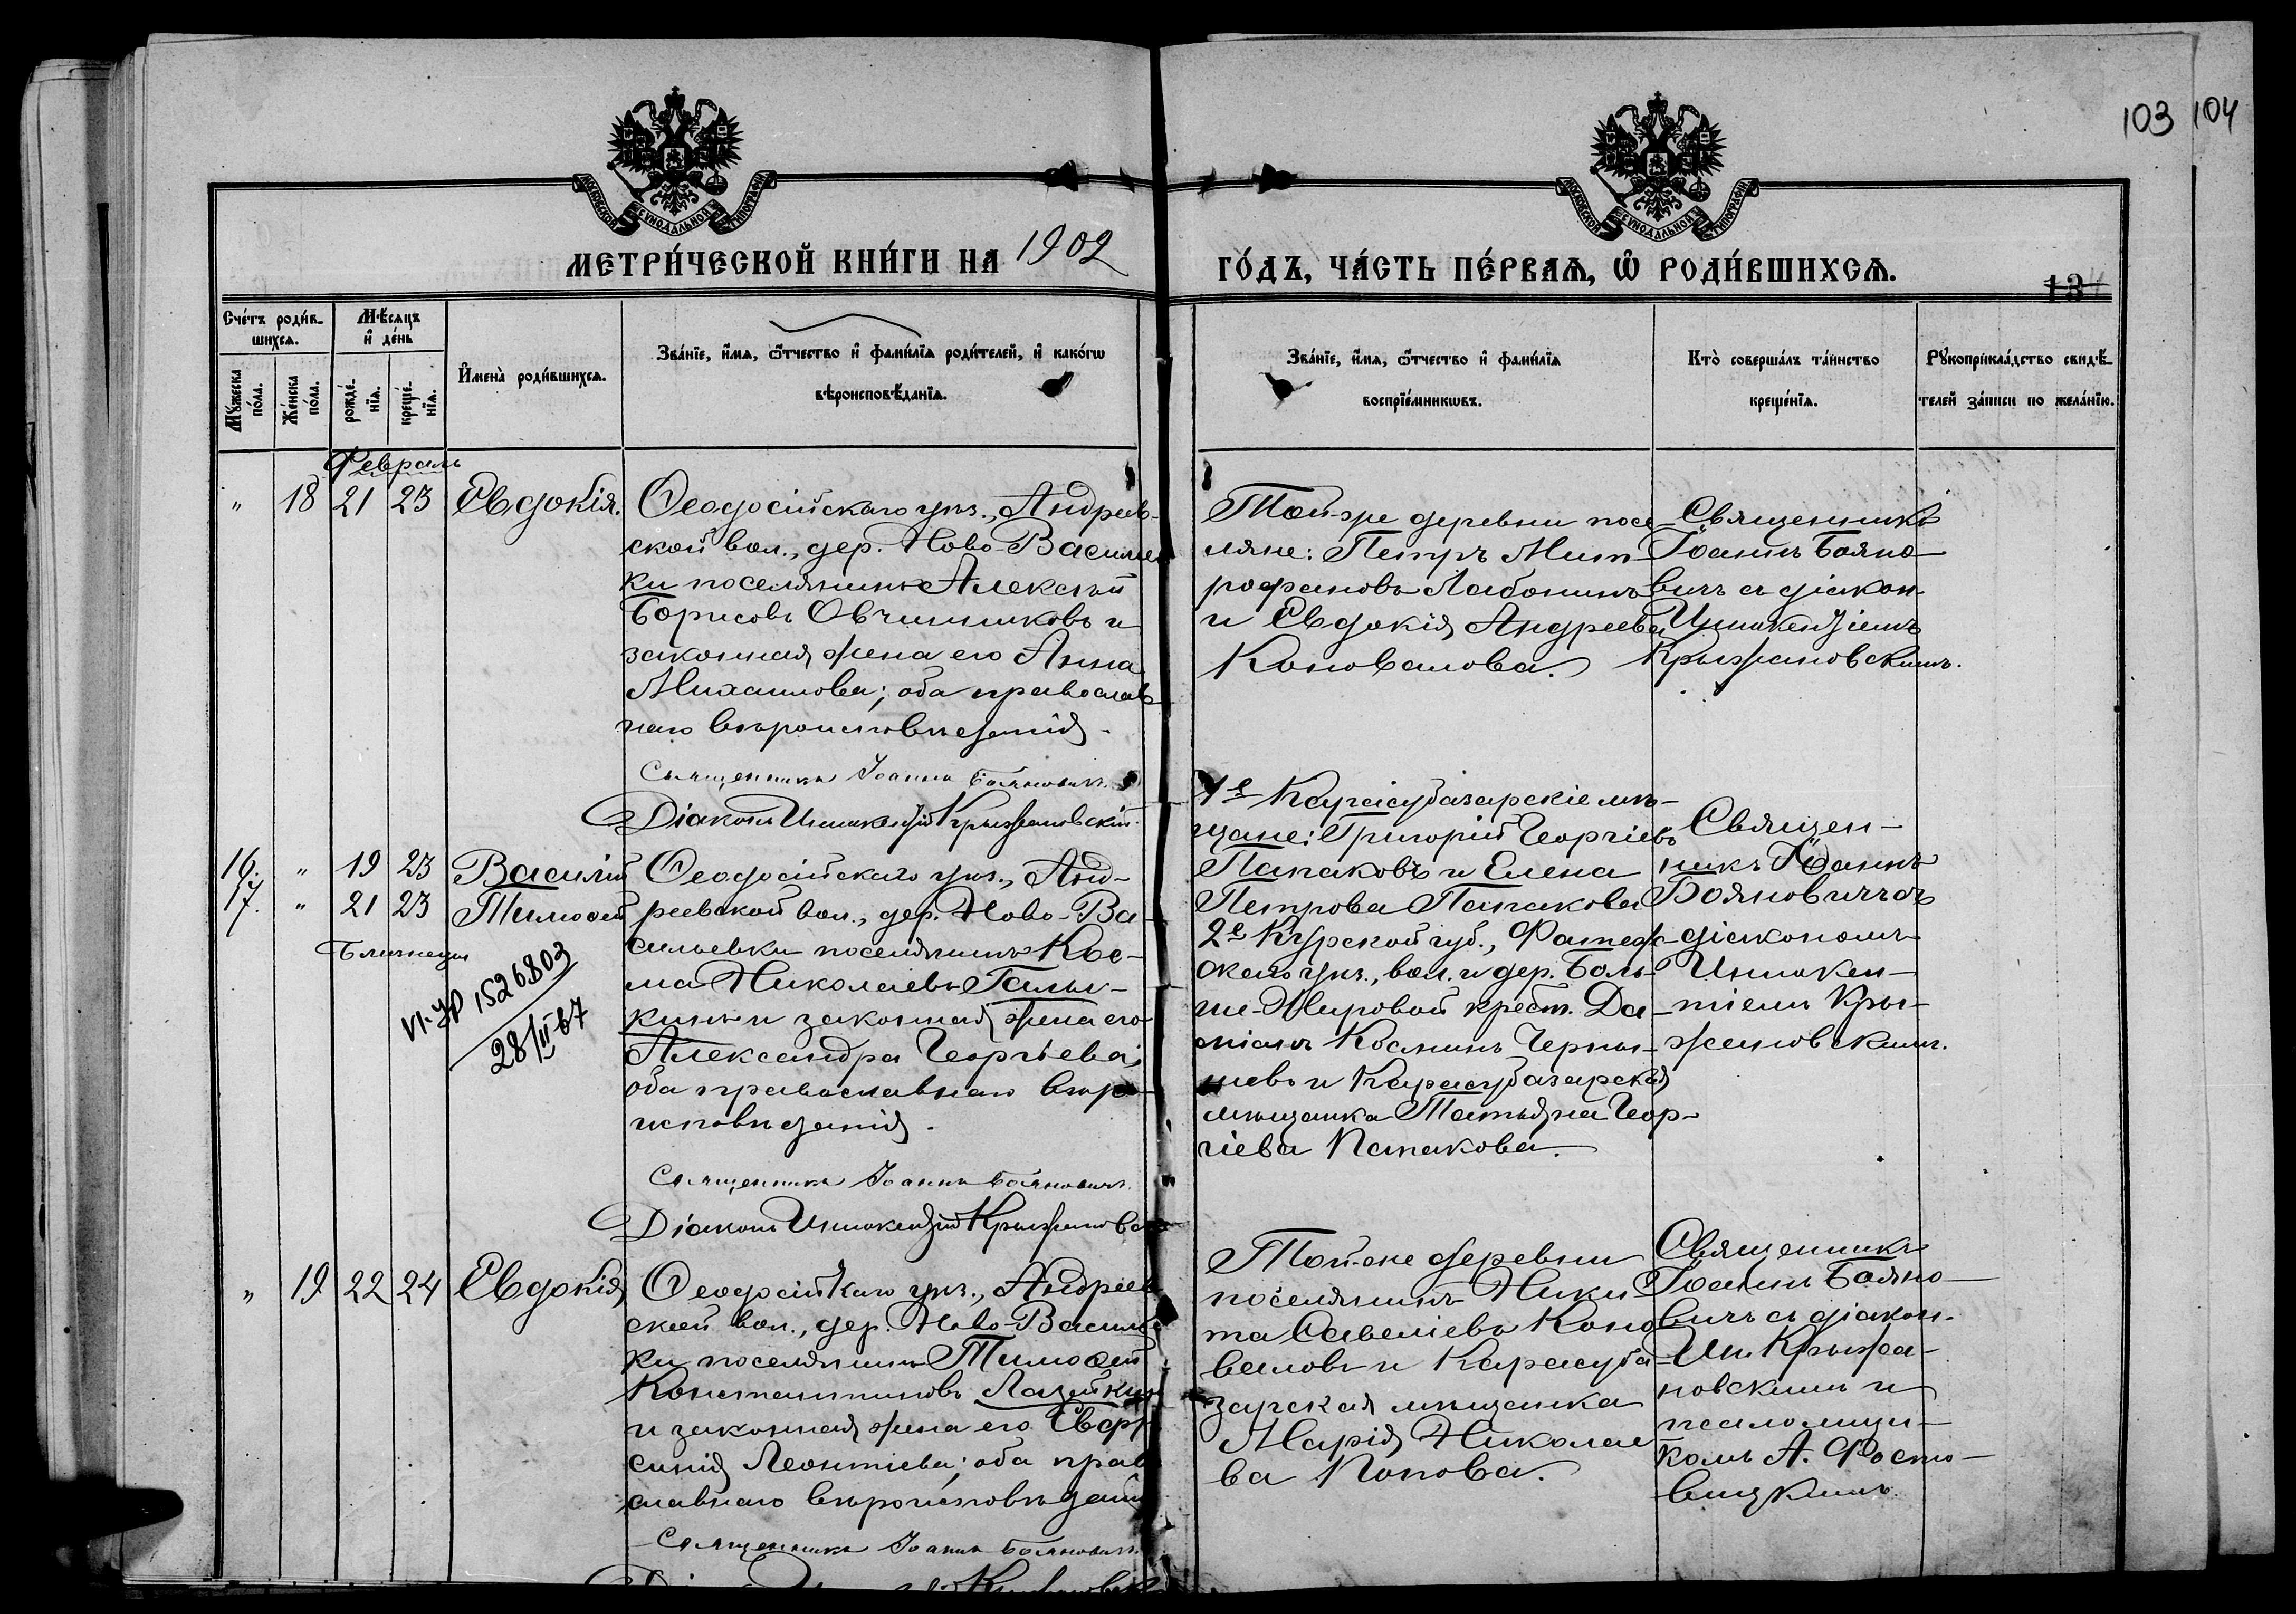 103 104
МОСКОВСКОЙ СУНОДАЛЬНОЙ ТИПОГРАФІИ
МОСКОВСКОЙ СУНОДАЛЬНОЙ ТИПОГРАФІИ
МЕТРИ́ЧЕСКОЙ КНИ́ГИ НА 1902
ГО́ДЪ, ЧА́СТЬ ПЕ́РВАѦ, Ѡ҆ РОДИ́ВШИХСѦ.
134
Сче́тъ роди́в-
шихсѧ.
Мѣ́сяцъ
и҆ де́нь
Мꙋ́жеска по́ла.
Же́нска по́ла.
рожде́-
нїѧ.
креще́-
нїѧ.
И҆мена̀ роди́вшихсѧ.
Зва́нїе, и҆́мѧ, ѻ҆́тчество и҆ фами́лїѧ роди́телей, и҆ како́гѡ
вѣроисповѣ́данїѧ.
Зва́нїе, и҆́мѧ, ѻ҆́тчество и҆ фами́лїѧ
воспрїе́мникѡвъ.
Кто̀ соверша́лъ та́инство
креще́нїѧ.
Рꙋкоприкла́дство свидѣ́-
телей за́писи по жела́нїю.
Февраль
" 18 21 23 Евдокія.
Ѳеодосійскаго уѣз., Андреев-
ской вол., дер. Ново-Василев
ки поселянинъ Алексѣй
Борисовъ Овчинниковъ и
законная жена его Анна
Михаилова; оба православ
наго вѣроисповѣданія.
Священникъ Іоаннъ Бояновичъ.
Діаконъ Иннокентій Крыжановскій.
Той-же деревни посе-
ляне: Петръ Мит-
рофановъ Лабонинъ
и Евдокія Андреева
Коновалова.
Священникъ
Іоаннъ Бояно-
вичъ съ діакон.
Иннокентіемъ
Крыжановскимъ.
16. " 19 23 Василій
17. " 21 23 Тимоѳей
Близнецы
VI-УР 1526803
28/II-67
Ѳеодосійскаго уѣз., Анд-
реевской вол., дер. Ново-Ва-
сильевки поселянинъ Кос-
ма Николаевъ Галы-
кинъ и законная жена его
Александра Георгіева;
оба православнаго вѣро-
исповѣданія.
Священникъ Іоаннъ Бояновичъ.
Діаконъ Иннокентій Крыжановс
1е Карасубазарскіе мѣ-
щане: Григорій Георгіевъ
Папаковъ и Елена
Петрова Папакова
2е Курской губ., Фатеж-
скаго уѣз., вол. и дер. Боль-
ше-Жировой крест. Да-
міанъ Косминъ Черны-
шевъ и Карасубазарская
мѣщанка Татьяна Геор-
гіева Папакова.
Священ-
никъ Іоаннъ
Бояновичъ съ
діакономъ
Иннокен-
тіемъ Кры-
жановскимъ.
" 19 22 24 Евдокія
Ѳеодосійскаго уѣз., Андреев
ской вол., дер. Ново-Василев
ки поселянинъ Тимоѳей
Константиновъ Лазейкин
и законная жена его Евфро
синія Леонтіева; оба прав
славнаго вѣроисповѣдані
Священникъ Іоаннъ Бояновичъ.
Той-же деревни
поселянинъ Ники
та Савеліевъ Коно
валовъ и Карасуба-
зарская мѣщанка
Марія Николае
ва Попова.
Священникъ
Іоаннъ Бояно-
вичъ съ діакон.
Ин. Крыжа-
новскимъ и
псаломщи-
комъ А. Фосто-
вицкимъ.